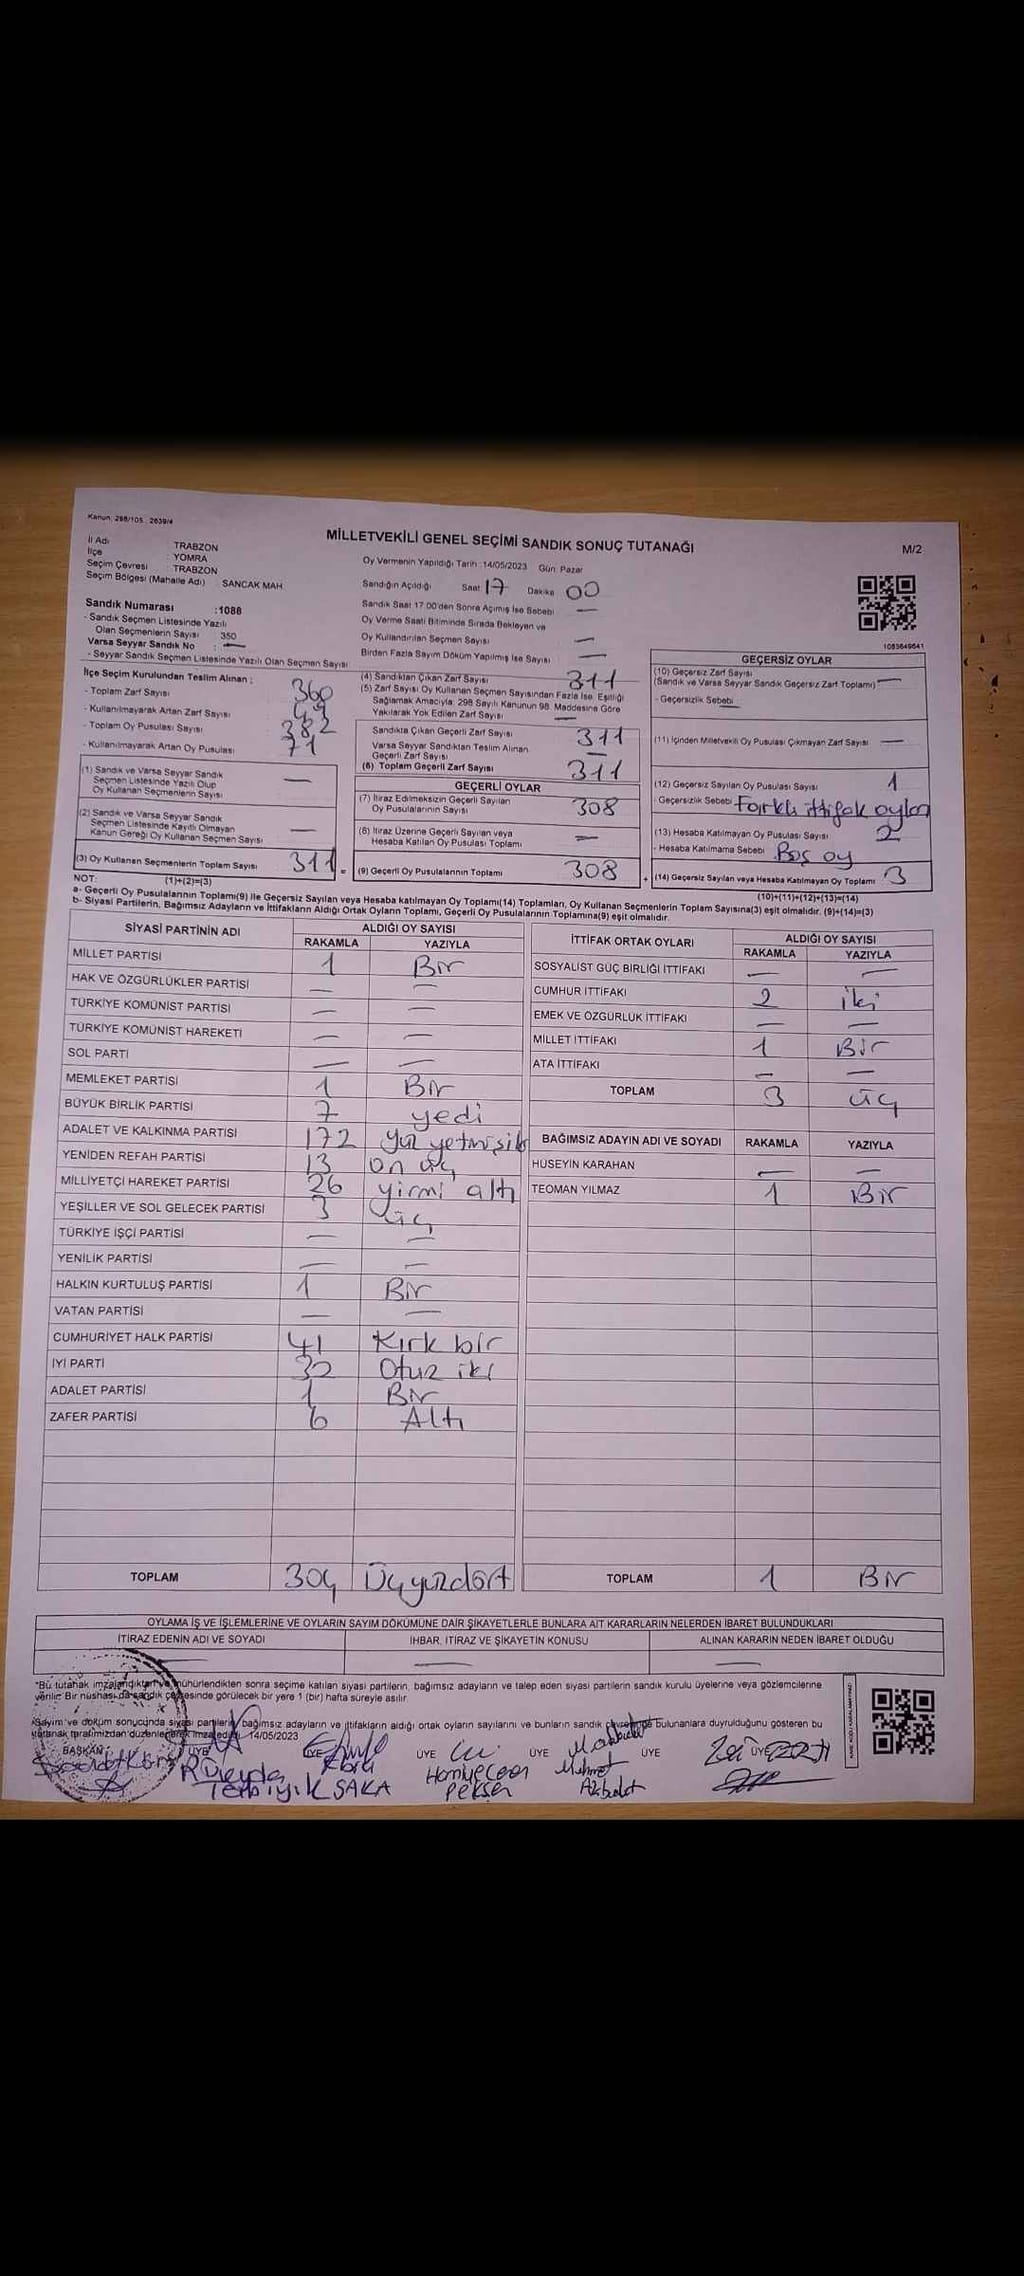 Kanun: 298/105 , 2839/4
MİLLETVEKİLİ GENEL SEÇİMİ SANDIK SONUÇ TUTANAĞI
M/2
İl Adı : TRABZON
İlçe : YOMRA
Seçim Çevresi : TRABZON
Seçim Bölgesi (Mahalle Adı) SANCAK MAH
Oy Vermenin Yapıldığı Tarih :14/05/2023 Gün: Pazar
Sandığın Açıldığı Saat 17 Dakika 00
Sandık Saat 17.00'den Sonra Açımış İse Sebebi —
Oy Verme Saati Bitiminde Sırada Bekleyen ve
Oy Kullandırılan Seçmen Sayısı —
Birden Fazla Sayım Döküm Yapılmış İse Sayısı —
Sandık Numarası :1088
- Sandık Seçmen Listesinde Yazılı
Olan Seçmenlerin Sayısı 350
Varsa Seyyar Sandık No : —
- Seyyar Sandık Seçmen Listesinde Yazılı Olan Seçmen Sayısı
1083649641
İlçe Seçim Kurulundan Teslim Alınan :
- Toplam Zarf Sayısı 360
- Kullanılmayarak Artan Zarf Sayısı 49
- Toplam Oy Pusulası Sayısı 382
- Kullanılmayarak Artan Oy Pusulası 71
(1) Sandık ve Varsa Seyyar Sandık
Seçmen Listesinde Yazılı Olup
Oy Kullanan Seçmenlerin Sayısı —
(2) Sandık ve Varsa Seyyar Sandık
Seçmen Listesinde Kayıtlı Olmayan
Kanun Gereği Oy Kullanan Seçmen Sayısı —
(3) Oy Kullanan Seçmenlerin Toplam Sayısı 311 =
(1)+(2)=(3)
(4) Sandıktan Çıkan Zarf Sayısı 311
(5) Zarf Sayısı Oy Kullanan Seçmen Sayısından Fazla İse, Eşitliği
Sağlamak Amacıyla; 298 Sayılı Kanunun 98. Maddesine Göre
Yakılarak Yok Edilen Zarf Sayısı —
Sandıkta Çıkan Geçerli Zarf Sayısı 311
Varsa Seyyar Sandıktan Teslim Alınan
Geçerli Zarf Sayısı —
(6) Toplam Geçerli Zarf Sayısı 311
GEÇERLİ OYLAR
(7) İtiraz Edilmeksizin Geçerli Sayılan
Oy Pusulalarının Sayısı 308
(8) İtiraz Üzerine Geçerli Sayılan veya
Hesaba Katılan Oy Pusulası Toplamı —
(9) Geçerli Oy Pusulalarının Toplamı 308 +
GEÇERSİZ OYLAR
(10) Geçersiz Zarf Sayısı
(Sandık ve Varsa Seyyar Sandık Geçersiz Zarf Toplamı) —
- Geçersizlik Sebebi —
(11) İçinden Milletvekili Oy Pusulası Çıkmayan Zarf Sayısı —
(12) Geçersiz Sayılan Oy Pusulası Sayısı 1
- Geçersizlik Sebebi Farklı ittifak oyları
(13) Hesaba Katılmayan Oy Pusulası Sayısı 2
- Hesaba Katılmama Sebebi Boş oy
(14) Geçersiz Sayılan veya Hesaba Katılmayan Oy Toplamı 3
(10)+(11)+(12)+(13)=(14)
NOT:
a- Geçerli Oy Pusulalarının Toplamı(9) ile Geçersiz Sayılan veya Hesaba katılmayan Oy Toplamı(14) Toplamları, Oy Kullanan Seçmenlerin Toplam Sayısına(3) eşit olmalıdır. (9)+(14)=(3)
b- Siyasi Partilerin, Bağımsız Adayların ve İttifakların Aldığı Ortak Oyların Toplamı, Geçerli Oy Pusulalarının Toplamına(9) eşit olmalıdır.
SİYASİ PARTİNİN ADI ALDIĞI OY SAYISI
RAKAMLA YAZIYLA
MİLLET PARTİSİ 1 Bir
HAK VE ÖZGÜRLÜKLER PARTİSİ — —
TÜRKİYE KOMÜNİST PARTİSİ — —
TÜRKİYE KOMÜNİST HAREKETİ — —
SOL PARTİ — —
MEMLEKET PARTİSİ 1 Bir
BÜYÜK BİRLİK PARTİSİ 7 yedi
ADALET VE KALKINMA PARTİSİ 172 yüz yetmişiki
YENİDEN REFAH PARTİSİ 13 on üç
MİLLİYETÇİ HAREKET PARTİSİ 26 yirmi altı
YEŞİLLER VE SOL GELECEK PARTİSİ 3 üç
TÜRKİYE İŞÇİ PARTİSİ — —
YENİLİK PARTİSİ — —
HALKIN KURTULUŞ PARTİSİ 1 Bir
VATAN PARTİSİ — —
CUMHURİYET HALK PARTİSİ 41 Kırk bir
İYİ PARTİ 32 Otuz iki
ADALET PARTİSİ 1 Bir
ZAFER PARTİSİ 6 Altı
TOPLAM 304 Üçyüzdört
İTTİFAK ORTAK OYLARI ALDIĞI OY SAYISI
RAKAMLA YAZIYLA
SOSYALİST GÜÇ BİRLİĞİ İTTİFAKI — —
CUMHUR İTTİFAKI 2 iki
EMEK VE ÖZGÜRLÜK İTTİFAKI — —
MİLLET İTTİFAKI 1 Bir
ATA İTTİFAKI — —
TOPLAM 3 üç
BAĞIMSIZ ADAYIN ADI VE SOYADI RAKAMLA YAZIYLA
HÜSEYİN KARAHAN — —
TEOMAN YILMAZ 1 Bir
TOPLAM 1 Bir
OYLAMA İŞ VE İŞLEMLERİNE VE OYLARIN SAYIM DÖKÜMÜNE DAİR ŞİKAYETLERLE BUNLARA AİT KARARLARIN NELERDEN İBARET BULUNDUKLARI
İTİRAZ EDENİN ADI VE SOYADI İHBAR, İTİRAZ VE ŞİKAYETİN KONUSU ALINAN KARARIN NEDEN İBARET OLDUĞU
— — —
*Bu tutanak imzalandıktan ve mühürlendikten sonra seçime katılan siyasi partilerin, bağımsız adayların ve talep eden siyasi partilerin sandık kurulu üyelerine veya gözlemcilerine
verilir. Bir nüshası da sandık çevresinde görülecek bir yere 1 (bir) hafta süreyle asılır.
*Sayım ve döküm sonucunda siyasi partilerin, bağımsız adayların ve ittifakların aldığı ortak oyların sayılarını ve bunların sandık çevresinde bulunanlara duyurulduğunu gösteren bu
tutanak tarafımızdan düzenlenerek imza edildi. 14/05/2023
BAŞKAN ÜYE ÜYE ÜYE ÜYE ÜYE ÜYE
Mehmet
Akbulut
SAKA
Pekşen